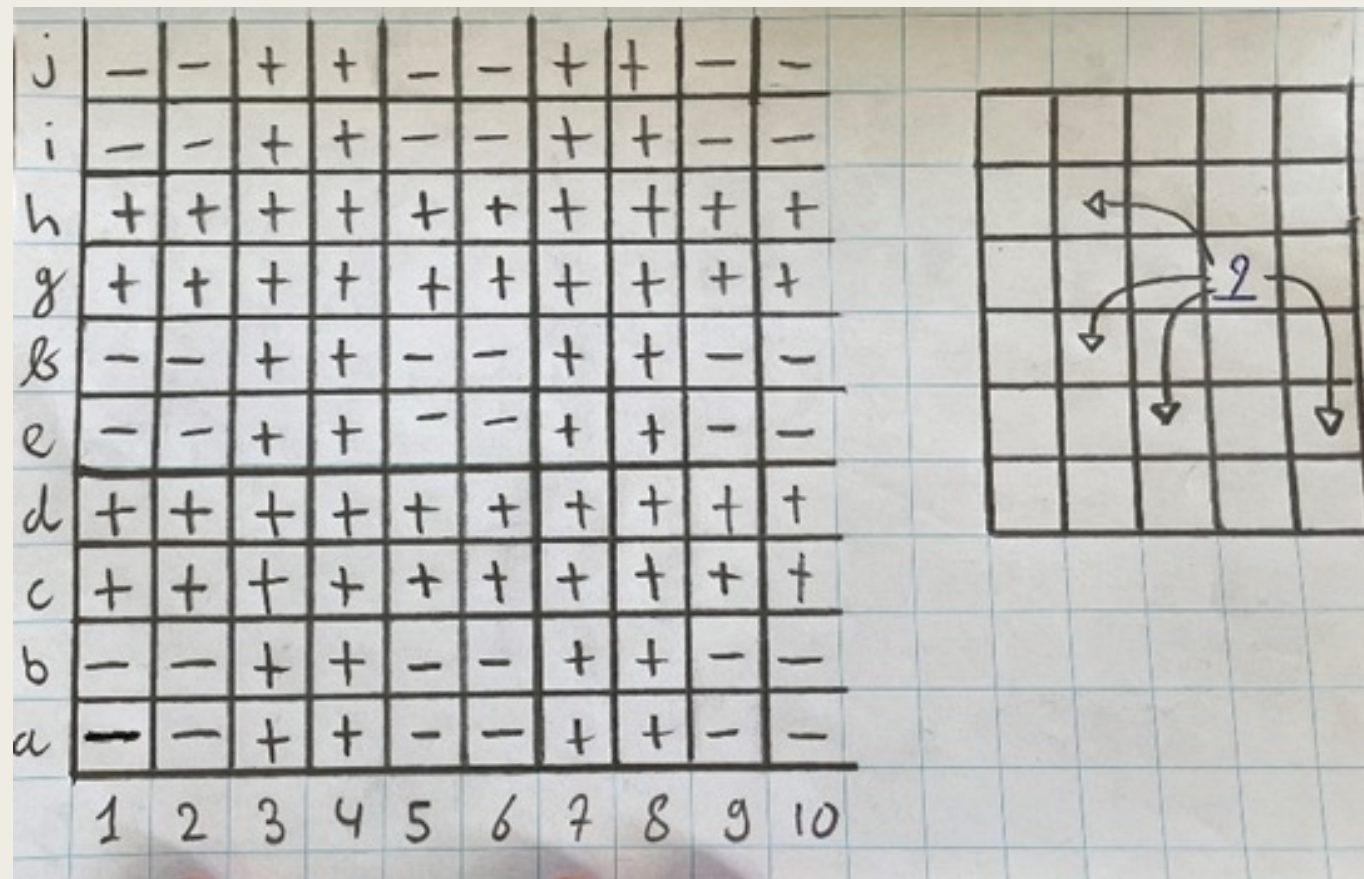 j - - + + - - + + - -
i - - + + - - + + - -
h + + + + + + + + + +
g + + + + + + + + + +
f - - + + - - + + - -
e - - + + - - + + - -
d + + + + + + + + + +
c + + + + + + + + + +
b - - + + - - + + - -
a - - + + - - + + - -
1 2 3 4 5 6 7 8 9 10